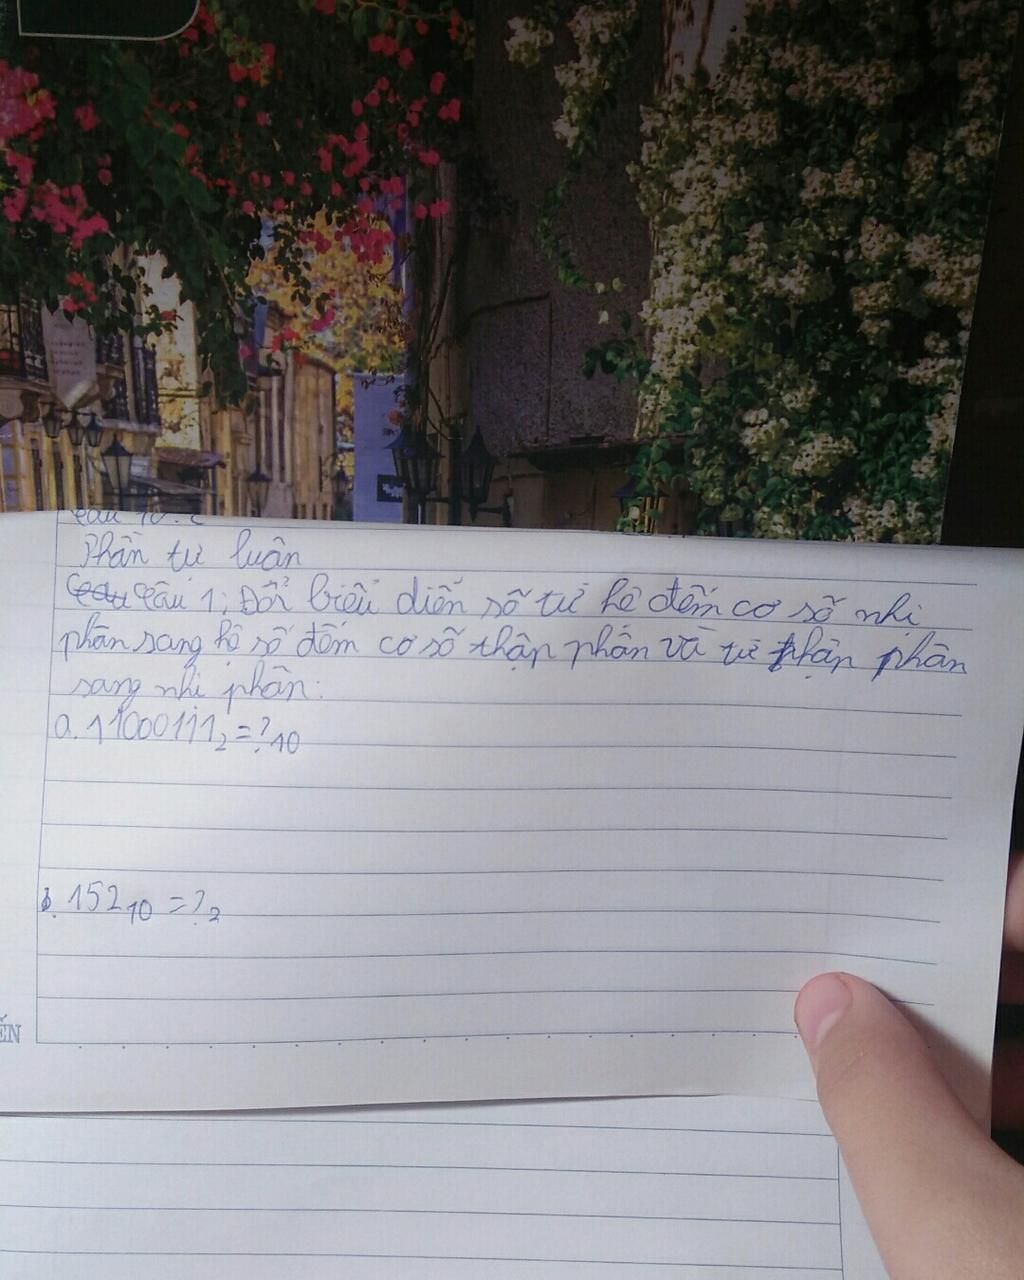 Câu 10. C
Phần tự luận
Câu 1: Đổi biểu diễn số từ hệ đếm cơ số nhị
phân sang hệ số đếm cơ số thập phân và từ thập phân
sang nhị phân:
a. 11000111₂ = ?₁₀
b. 152₁₀ = ?₂
ẾN